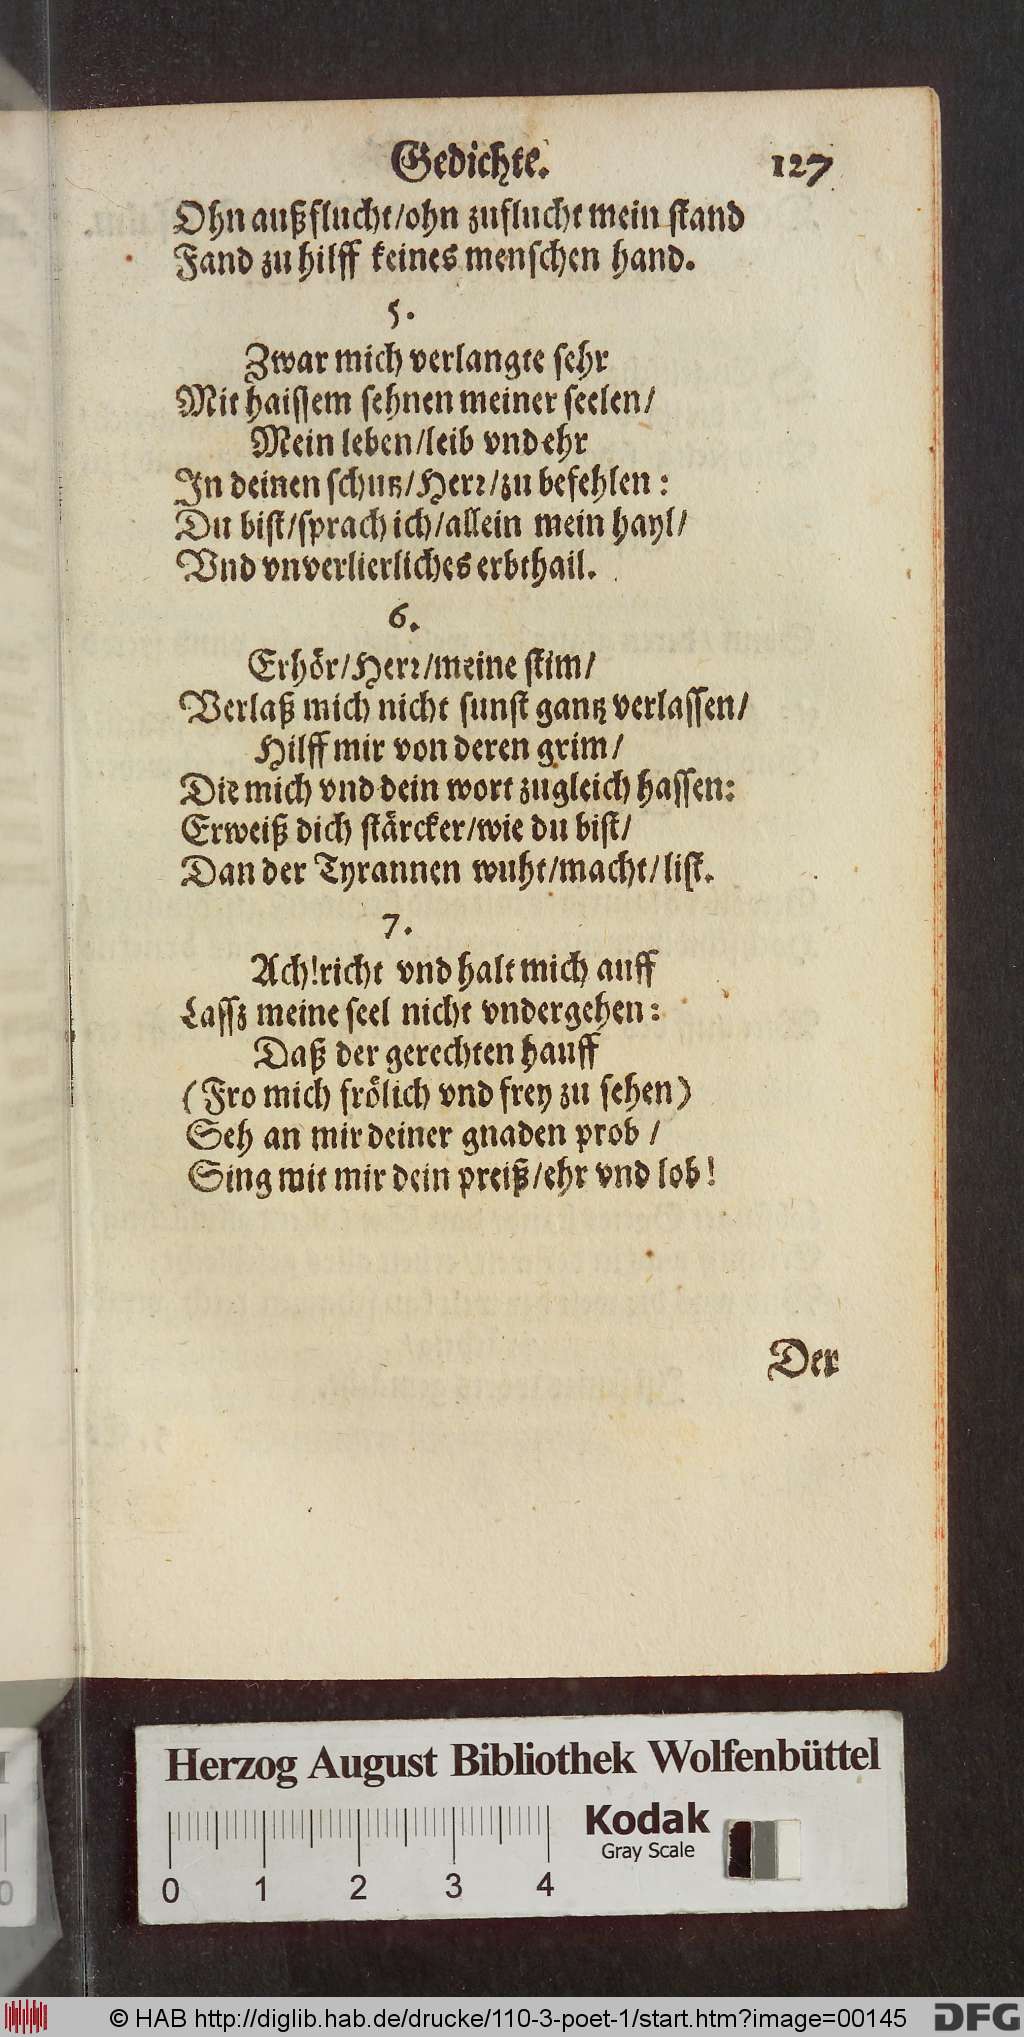 Gedichte. 127
Ohn außflucht/ohn zuflucht mein stand
Fand zu hilff keines menschen hand.
5.
Zwar mich verlangte sehr
Mit haissem sehnen meiner seelen/
Mein leben/leib vnd ehr
In deinen schutz/Herr/zu befehlen:
Du bist/sprach ich/allein mein hayl/
Vnd vnverlierliches erbthail.
6.
Erhör/Herr/meine stim/
Verlaß mich nicht sunst gantz verlassen/
Hilff mir von deren grim/
Die mich vnd dein wort zugleich hassen:
Erweiß dich stärcker/wie du bist/
Dan der Tyrannen wuht/macht/list.
7.
Ach!richt vnd halt mich auff
Lassz meine seel nicht vndergehen:
Daß der gerechten hauff
(Fro mich frölich vnd frey zu sehen)
Seh an mir deiner gnaden prob /
Sing mit mir dein preiß/ehr vnd lob!
Der
Herzog August Bibliothek Wolfenbüttel
Kodak
Gray Scale
0 1 2 3 4
© HAB http://diglib.hab.de/drucke/110-3-poet-1/start.htm?image=00145
DFG